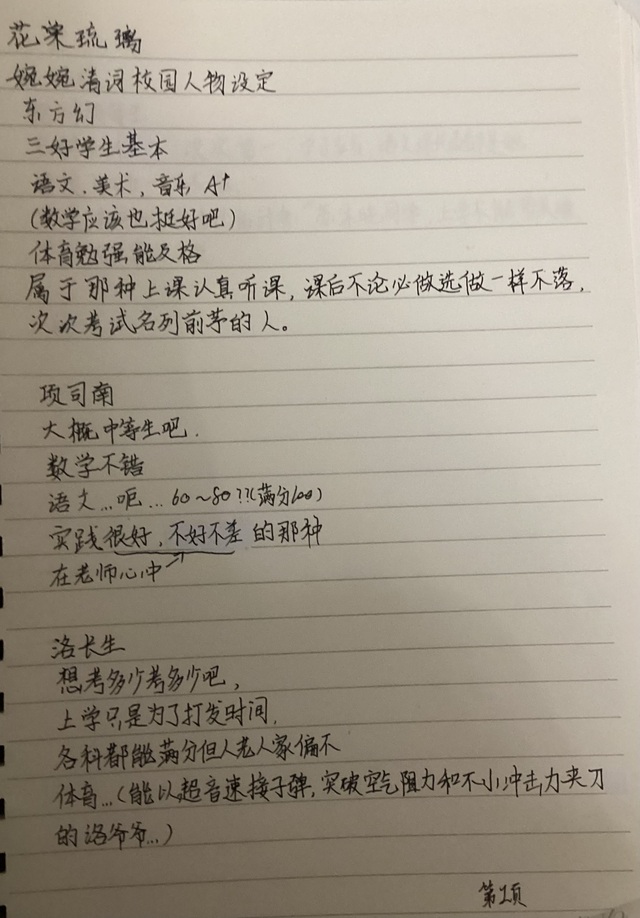 花荣琉璃
婉婉清词校园人物设定
东方幻
三好学生基本
语文、美术、音乐 A+
(数学应该也挺好吧)
体育勉强能及格
属于那种上课认真听课，课后不论必做选做一样不落，
次次考试名列前茅的人。
项司南
大概中等生吧.
数学不错
语文...呃...60~80??(满分100)
实践很好，不好不差的那种
在老师心中
洛长生
想考多少考多少吧，
上学只是为了打发时间.
各科都能满分但人老人家偏不
体育...(能以超音速接子弹,突破空气阻力和不小冲击力夹刀
的洛爷爷...)
第1页